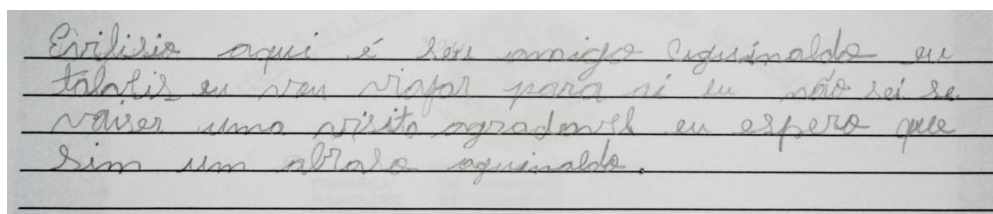 Evilisio aqui é seu amigo Aguinaldo eu
talvis eu vou viajar para ai eu não sei se
vaiser uma visita agradavel eu espero que
sim um abraso aguinaldo.